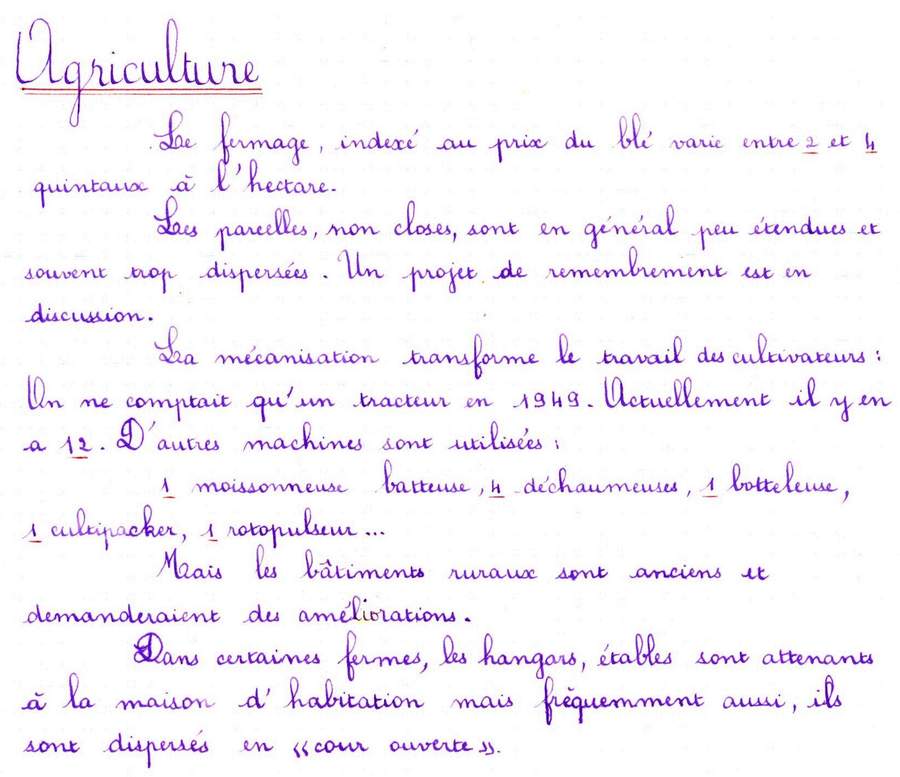 Agriculture
Le fermage, indexé au prix du blé varie entre 2 et 4
quintaux à l'hectare.
Les parcelles, non closes, sont en général peu étendues et
souvent trop dispersées. Un projet de remembrement est en
discussion.
La mécanisation transforme le travail des cultivateurs :
On ne comptait qu'un tracteur en 1949. Actuellement il y en
a 12. D'autres machines sont utilisées :
1 moissonneuse batteuse, 4 déchaumeuses, 1 botteleuse,
1 cultipacker, 1 rotopulseur...
Mais les bâtiments ruraux sont anciens et
demanderaient des améliorations.
Dans certaines fermes, les hangars, étables sont attenants
à la maison d'habitation mais fréquemment aussi, ils
sont dispersés en «cour ouverte».